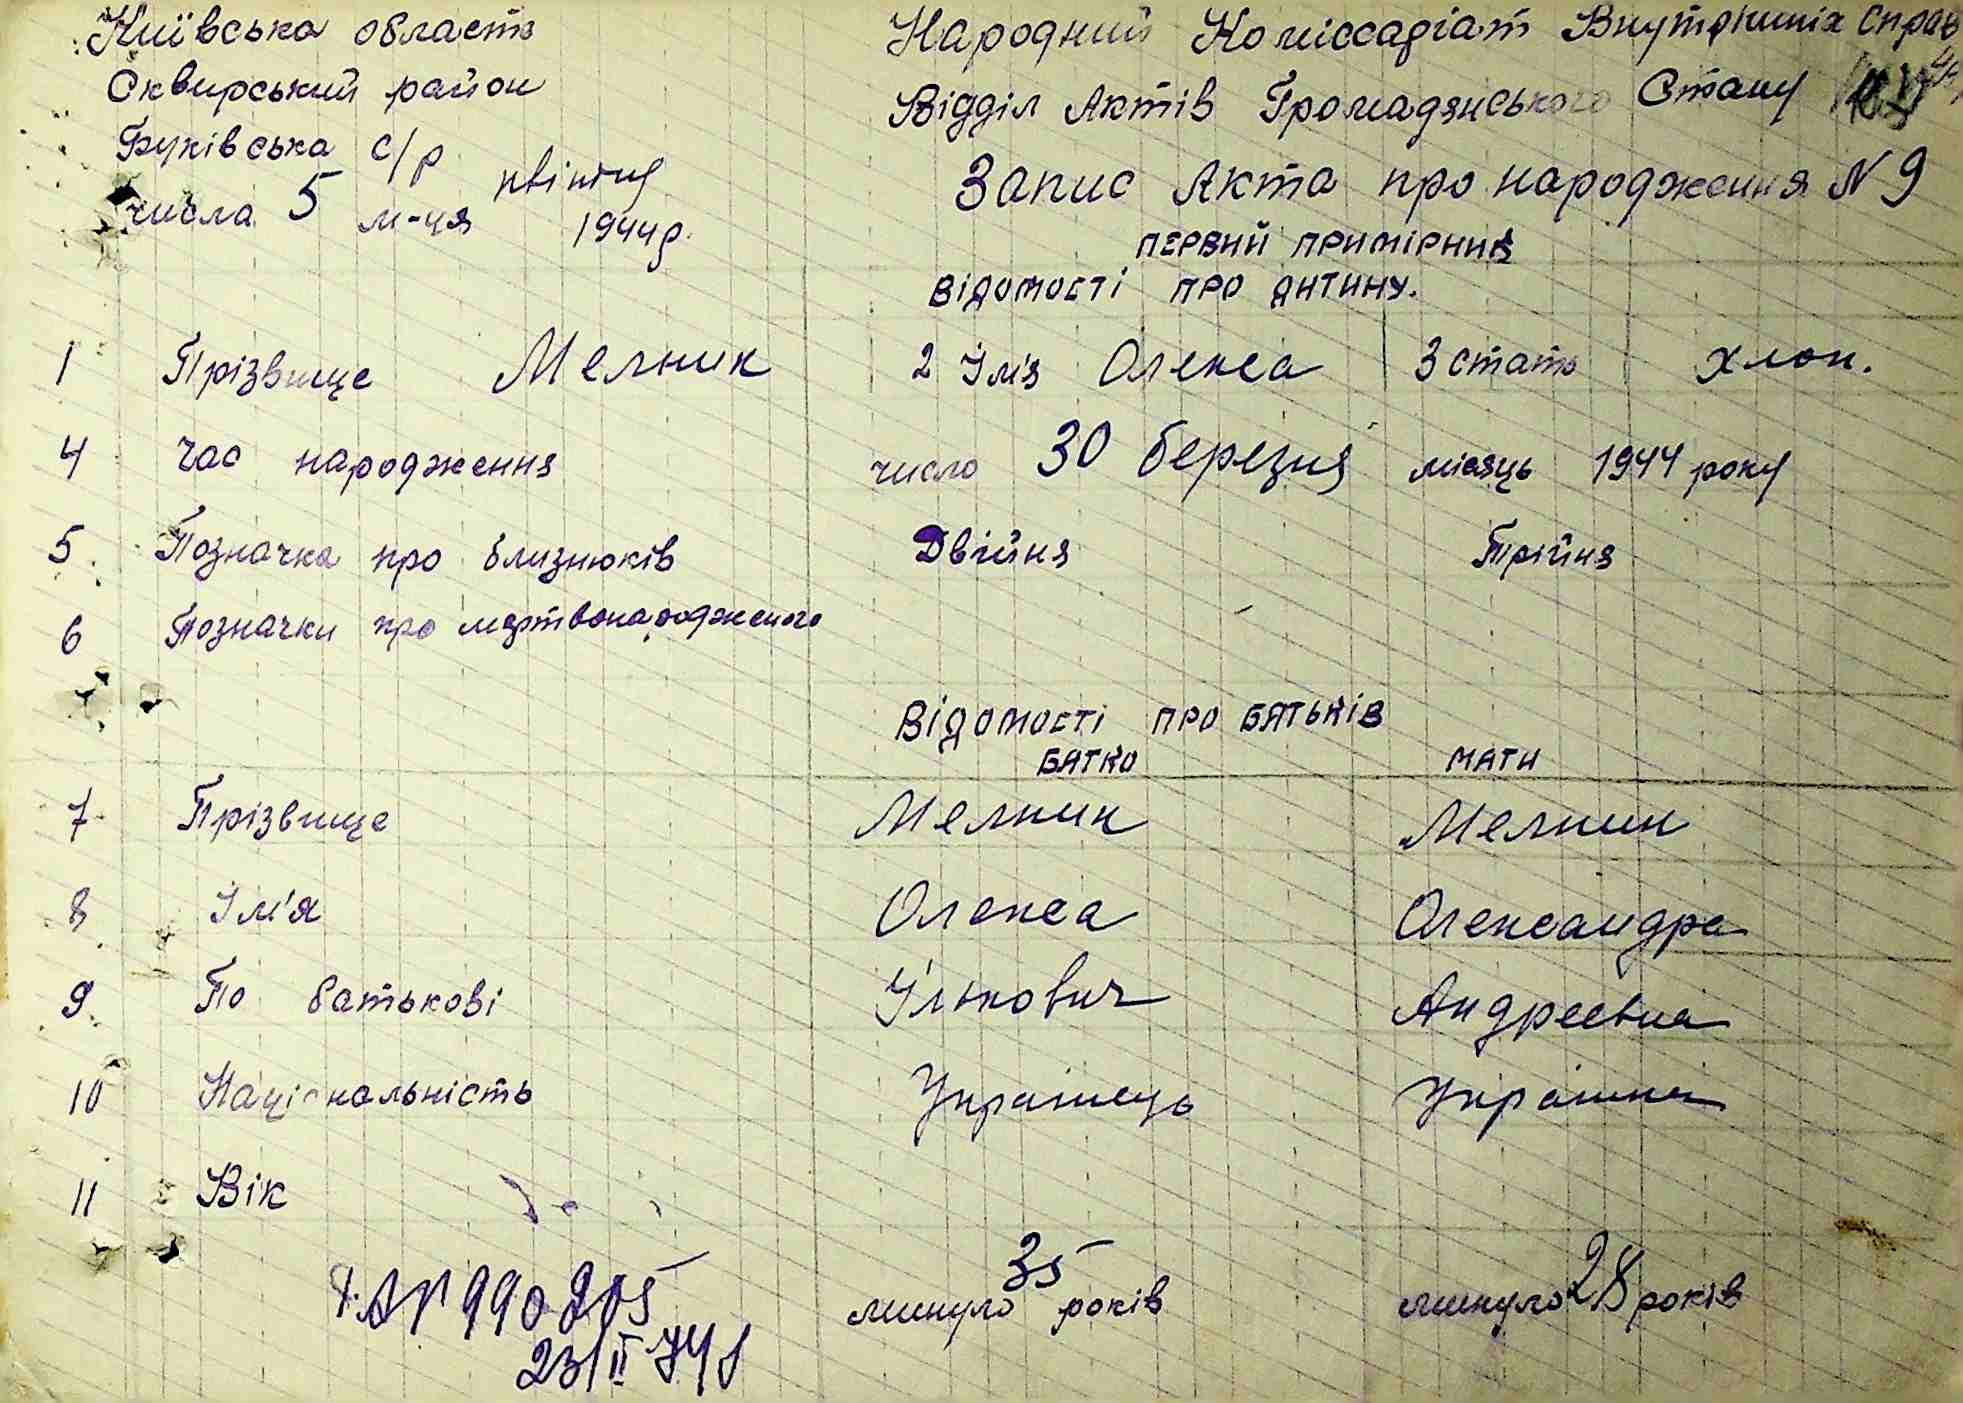 Київська область
Сквирський район
Буківська с/р
числа 5 м-ця квітня 1944р.
Народний Коміссаріат Внутрішніх Справ
Відділ Актів Громадянського Стану
Запис Акта про народження N 9
первий примірник
відомості про дитину.
1 Прізвище Мелник 2 Ім'я Олекса 3 стать хлоп.
4 Час народження число 30 березня місяць 1944 року
5 Позначка про близнюків Двійня Трійня
6 Позначки про мертвонародженого
Відомості про батьків
батко мати
7 Прізвище Мелник Мелник
8 Ім'я Олекса Олександра
9 По батькові Ількович Андреевна
10 Національність Українець Українка
11 Вік
минуло 35 років минуло 28 років
990205
23/II 74